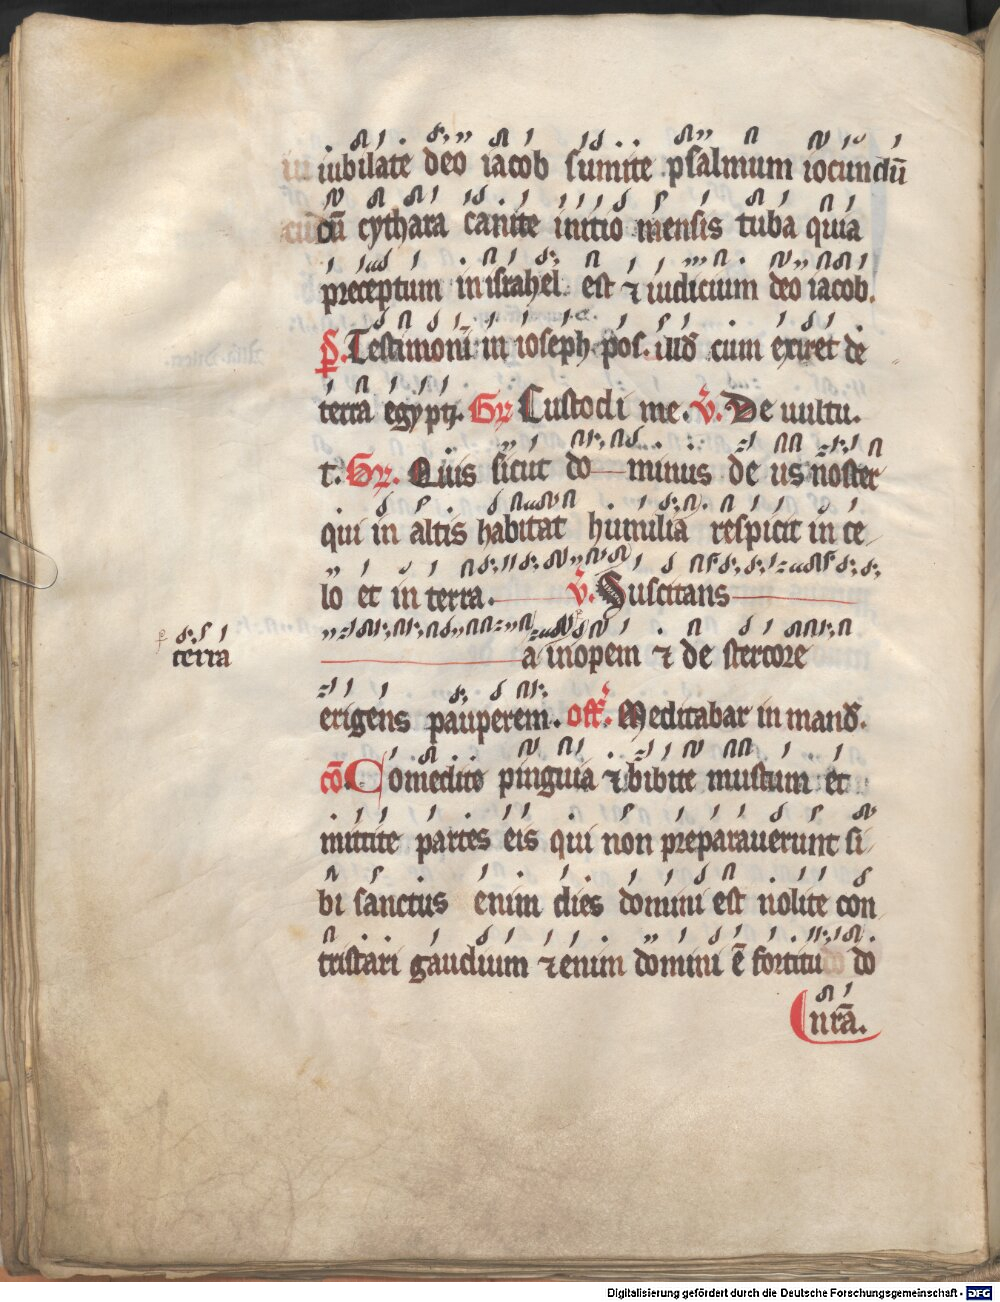 iubilate deo iacob sumite psalmum iocundū
cū cythara canite initio mensis tuba quia
preceptum in israhel est ⁊ iudicium deo iacob.
P̄. Testimoniū in ioseph pos. illd̄ cum exiret de
terra egypti. Gr̄ Custodi me. v̄. De uultu.
t. Gr̄. Quis sicut do minus de us noster
qui in altis habitat humilia respicit in ce
lo et in terra. v̄. Suscitans
terra
a inopem ⁊ de stercore
erigens pauperem. off̄. Meditabar in mand̄.
cō Comedite pinguia ⁊ bibite mustum et
mittite partes eis qui non preparauerunt si
bi sanctus enim dies domini est nolite con
tristari gaudium ⁊ enim domini ē fortitu do
nr̄a.
Digitalisierung gefördert durch die Deutsche Forschungsgemeinschaft - DFG